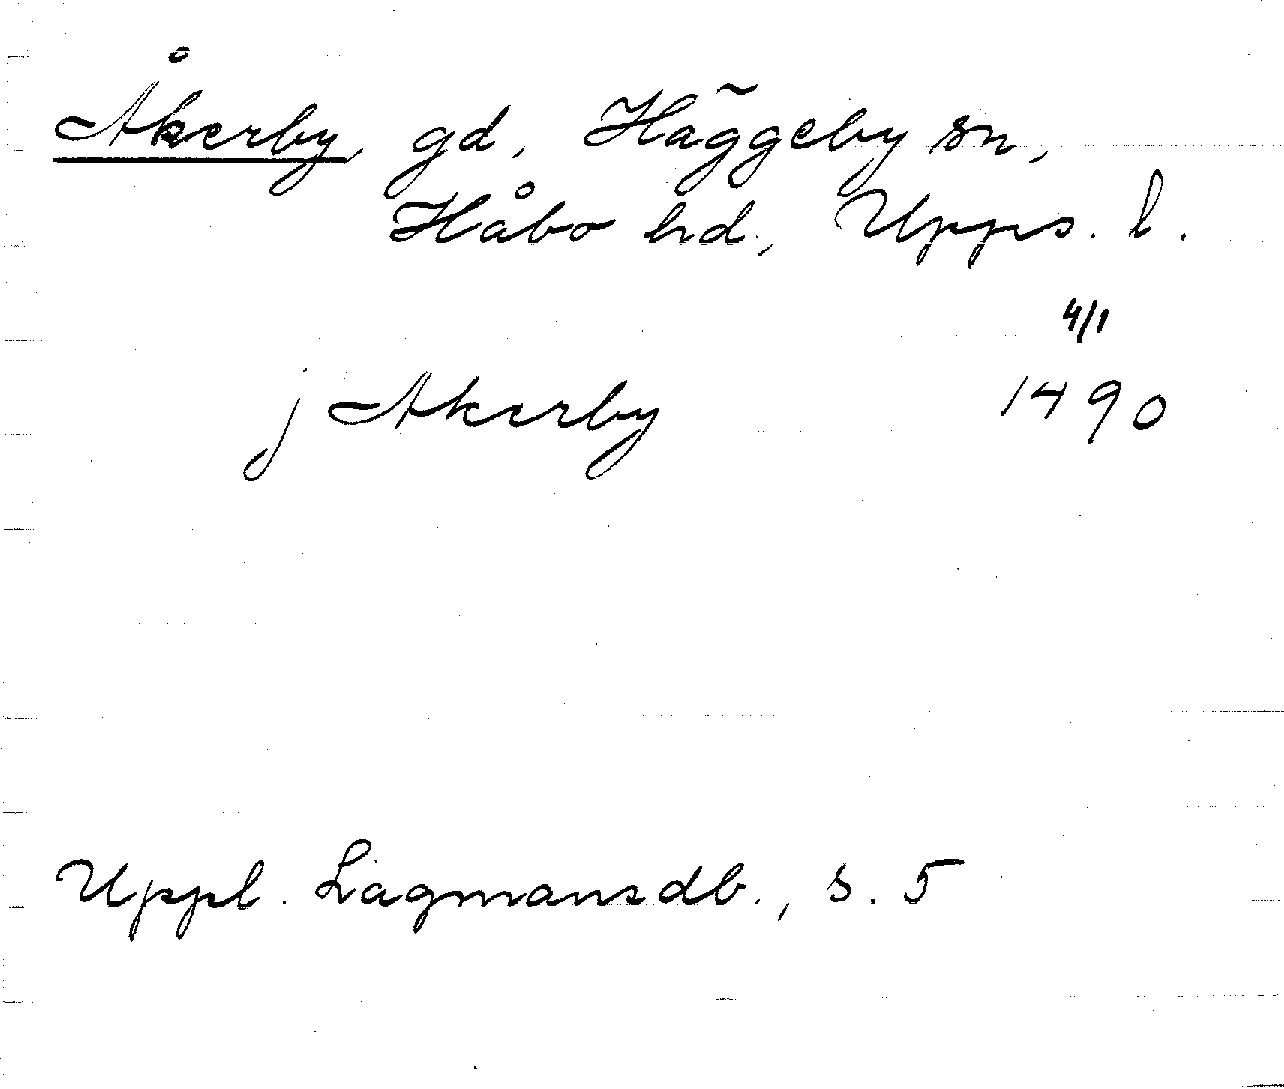 Åkerby, gd, Häggeby sn,
Håbo hd., Upps. l.
4/1
j Akerby 1490
Uppl. Lagmansdb., s. 5